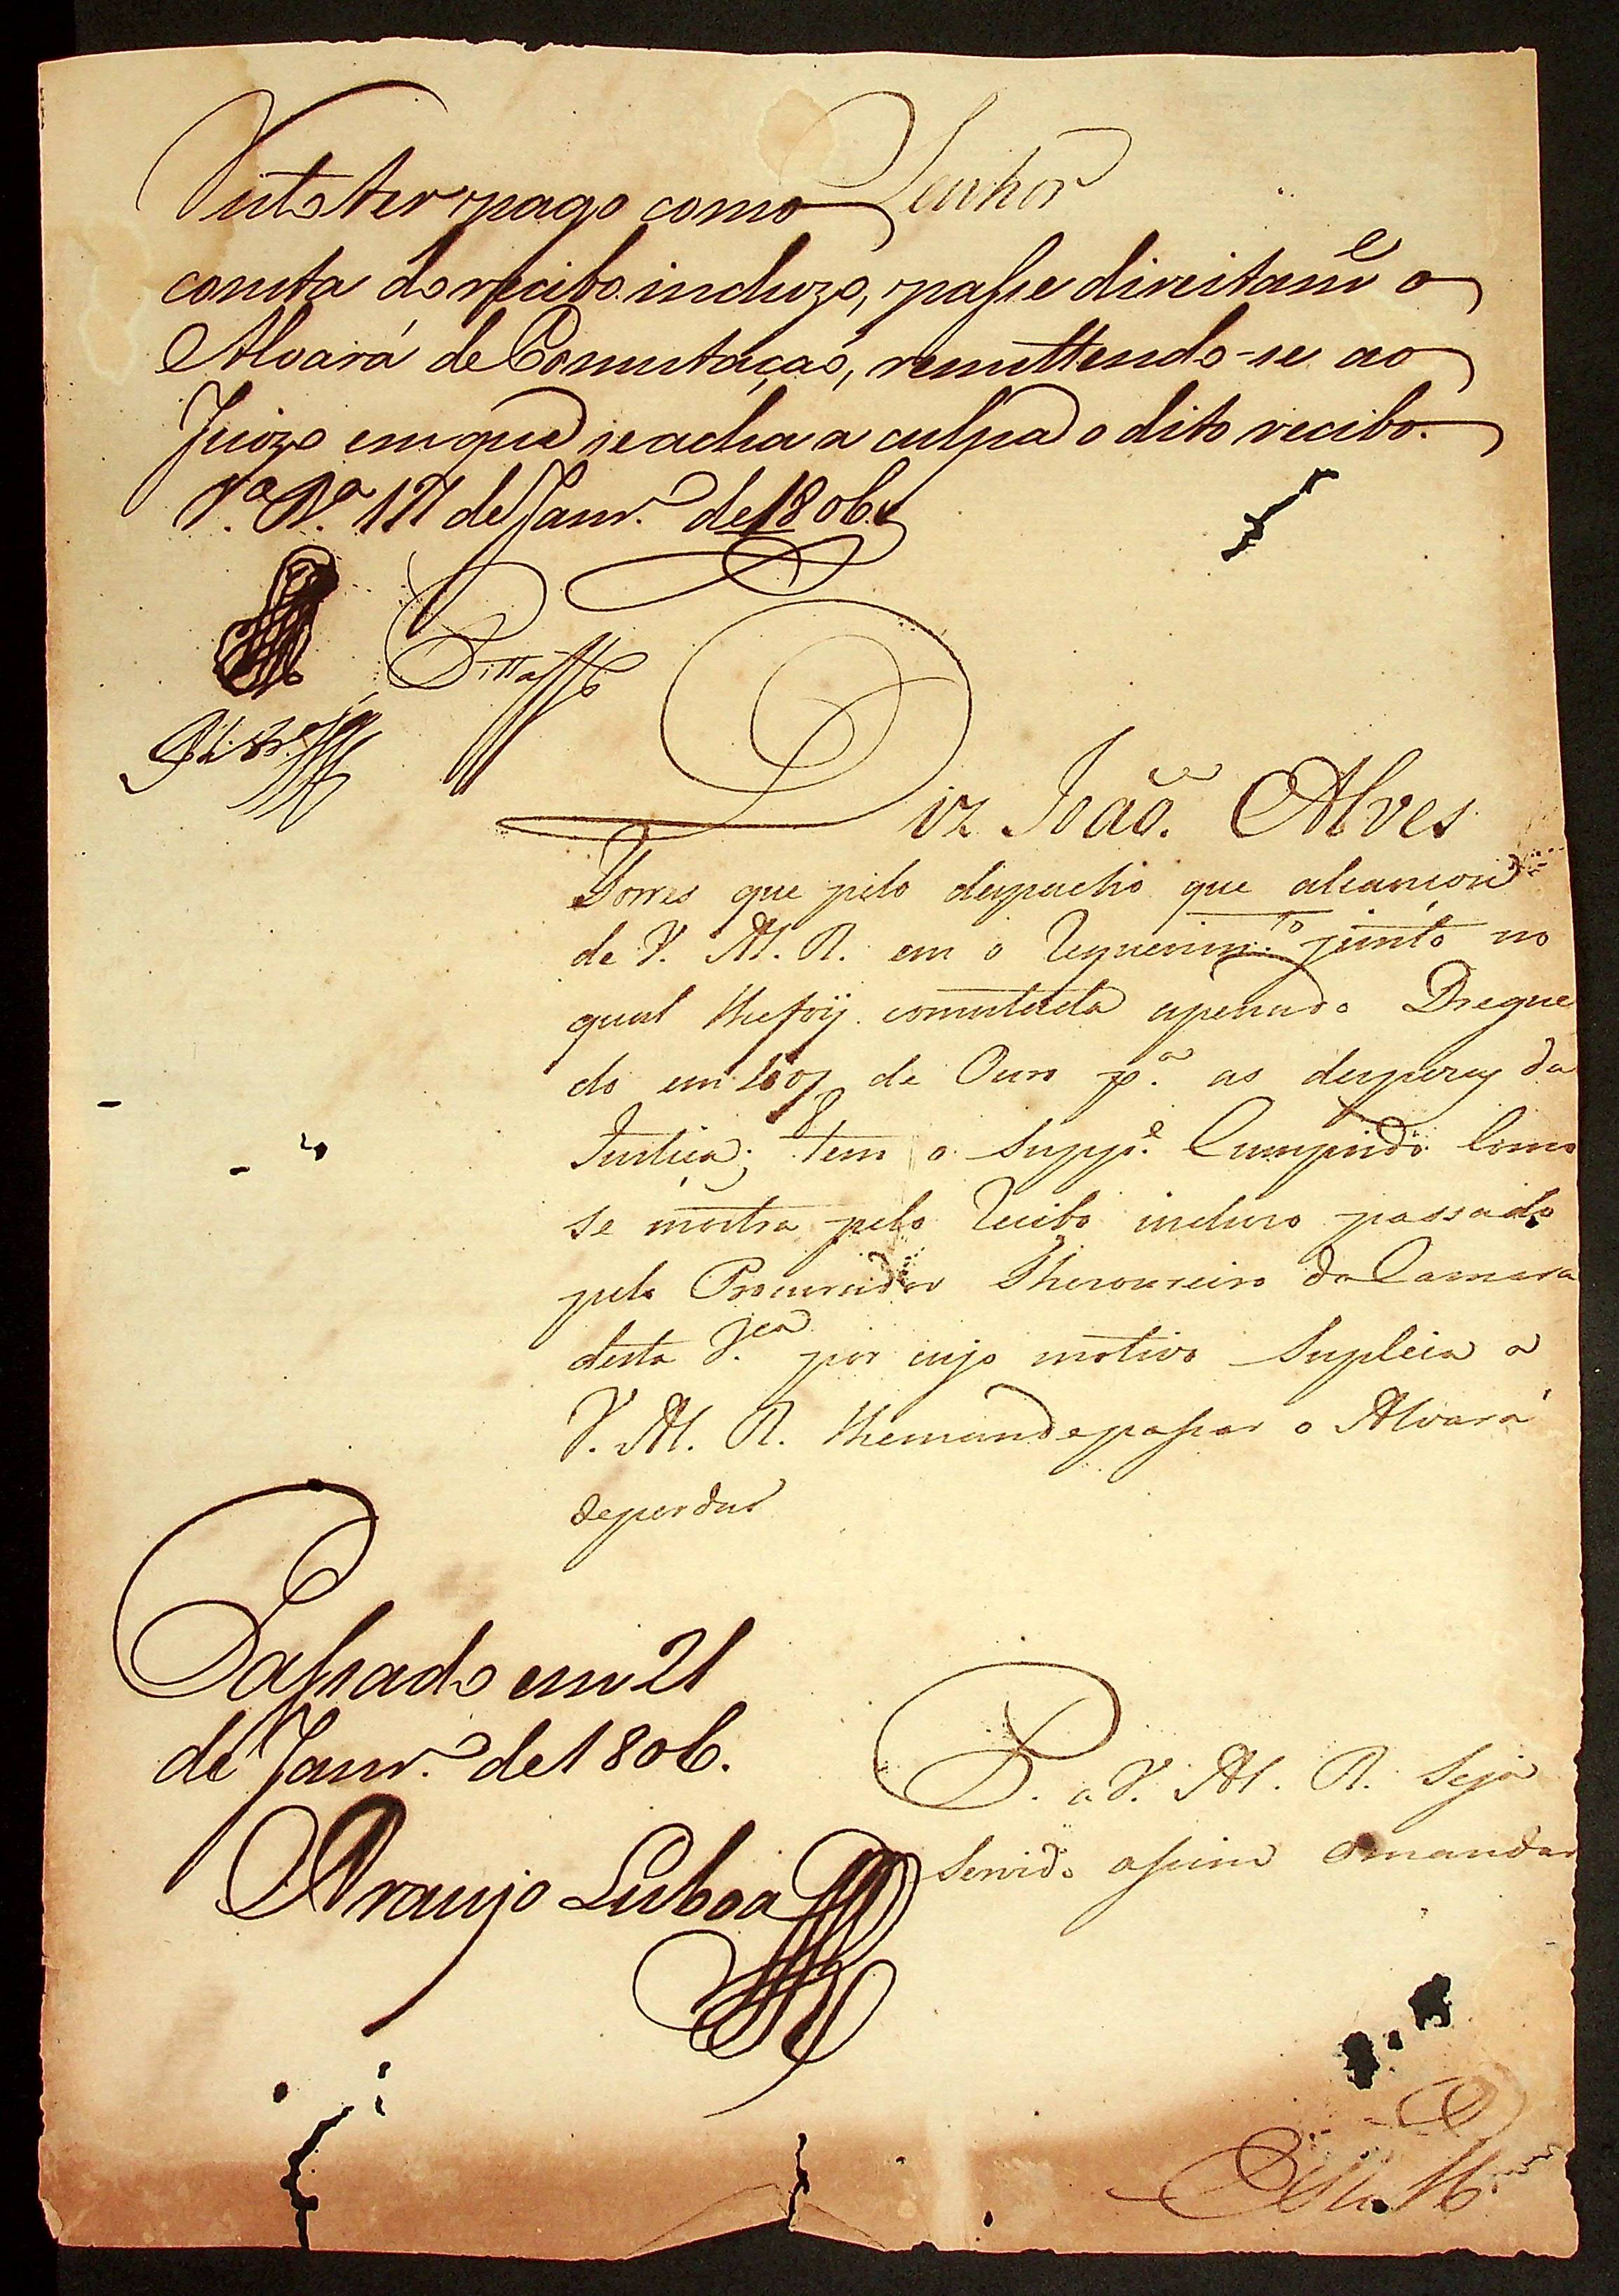 Senhor
Visto ter pago como
consta do recibo incluzo, passe direitam.e o
Alvará de Comutaçaõ, remettendo-se ao
Juizo em que se acha a culpa o dito recibo.
V.a R.a 17 de Janr.o de 1806
Pitta
Diz Joaõ Alves
Torres que pelo despacho que alcançou
de V. A. R. em o Requerim.to junto no
qual lhe foy comutada apena do Degre
do em de Ouro p.a as despezas da
Justiça; tem o Supp.e Cumprido Como
se mostra pelo Recibo incluzo passado
pelo Procurador Thezoureiro da Camara
desta V.a por cujo motivo Suplica a
V. A. R. lhe mande passar o Alvará
de perdaõ
Passado em 21
de Janr.o de 1806.
Araujo Lisboa
P. a V. A. R. Seja
Servido assim o mandar
E R M.